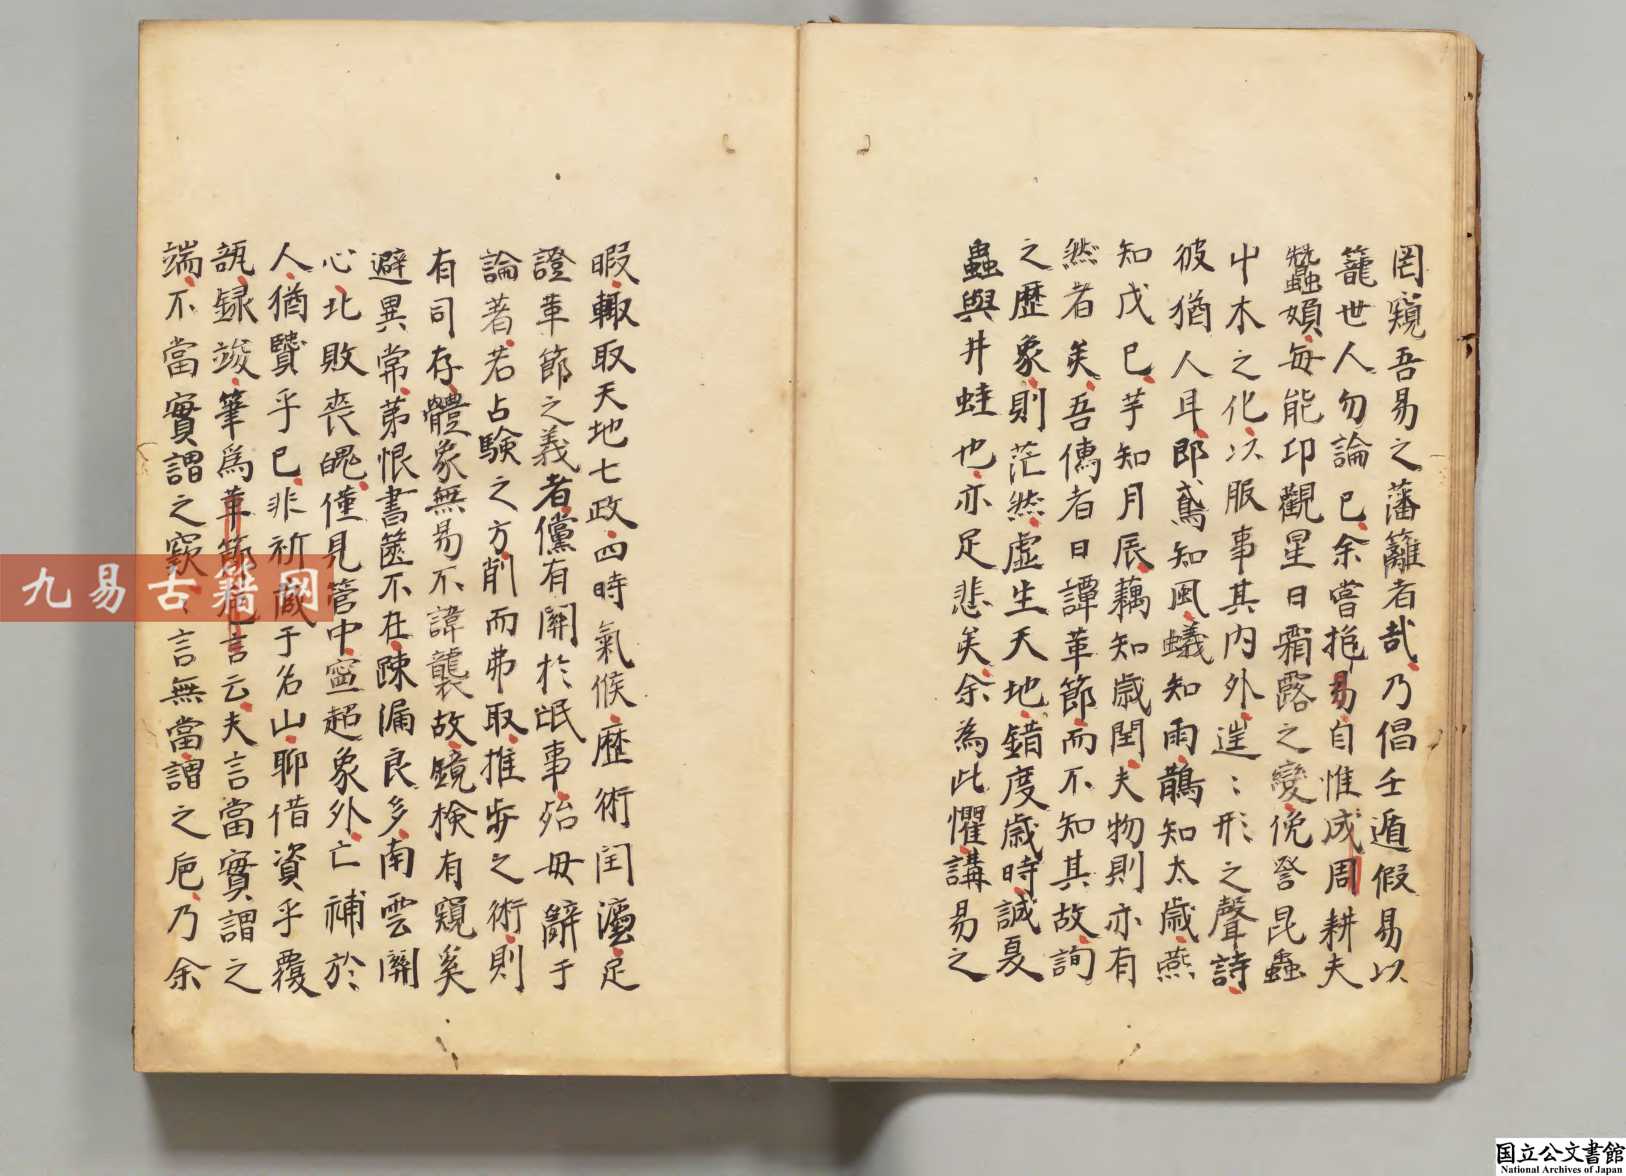 罔窺吾易之藩籬者哉乃倡壬遁假易以
籠世人勿論已余嘗抱易自惟成周耕夫
蠶媍每能印觀星日霜露之變俛詧昆蟲
屮木之化以服事其内外逹〻形之聲詩
彼猶人耳即鳶知風蟻知雨鵲知太歲燕
知戊己芋知月辰藕知歲閏夫物則亦有
然者矣吾儁者日譚革節而不知其故詢
之歷象則茫然虛生天地錯度歲時誠夏
蟲與井蛙也亦足悲矣余為此懼講易之
暇輙取天地七政四時氣候歷術閏瀘足
證革節之義者儻有關於氓事殆毋辭于
論著若占驗之方削而弗取推步之術則
有司存體象無易不諱襲故鏡檢有窺奚
避異常苐恨書篋不在踈漏良多南雲關
心北敗喪魄僅見管中寍超象外亡補於
人猶贒乎已非祈藏于名山聊借資乎覆
瓿録竣筆爲革節卮言云夫言當實謂之
端不當實謂之窾〻言無當謂之巵乃余
九易古籍网
国立公文書館
National Archives of Japan